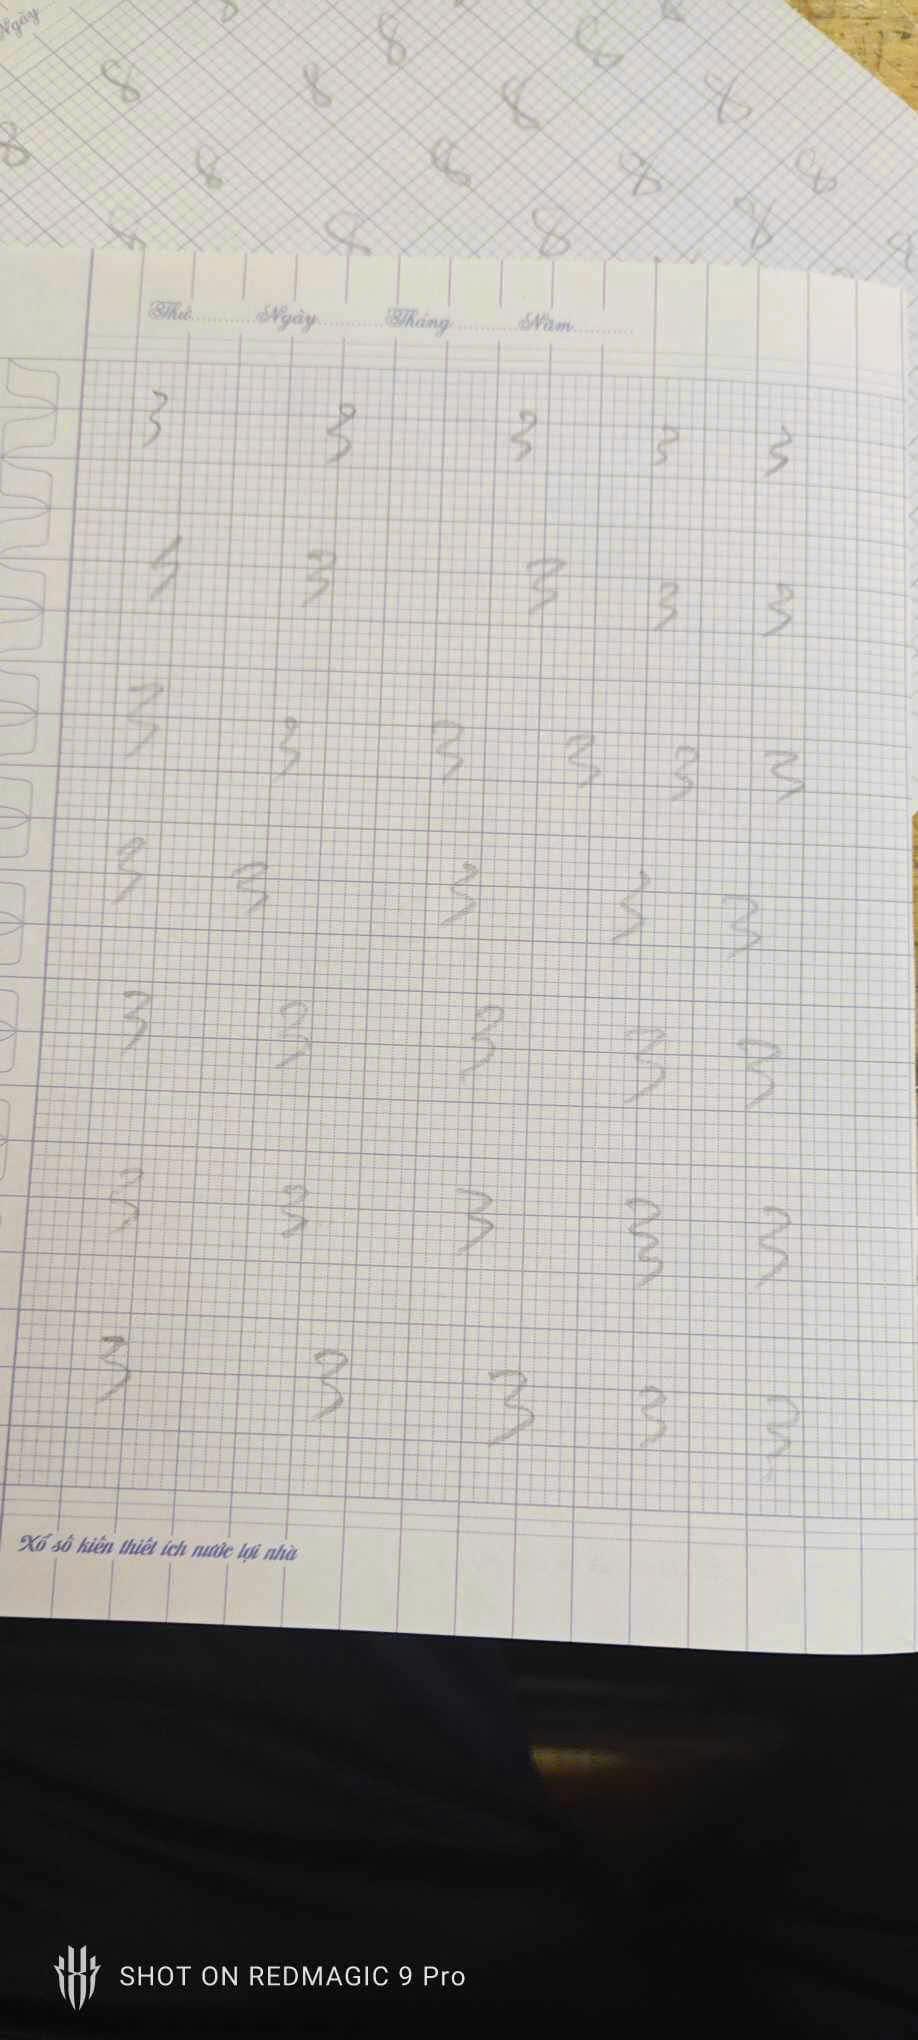 Ngày
8 8 8
8 8 8 8
8 8 8 8 8
8 8 8
Thứ............Ngày............Tháng............Năm............
3 3 3 3 3
3 3 3 3 3
3 3 3 3 3 3
3 3 3 3 3
3 3 3 3 3
3 3 3 3 3
3 3 3 3 3
Xổ số kiến thiết ích nước lợi nhà
SHOT ON REDMAGIC 9 Pro